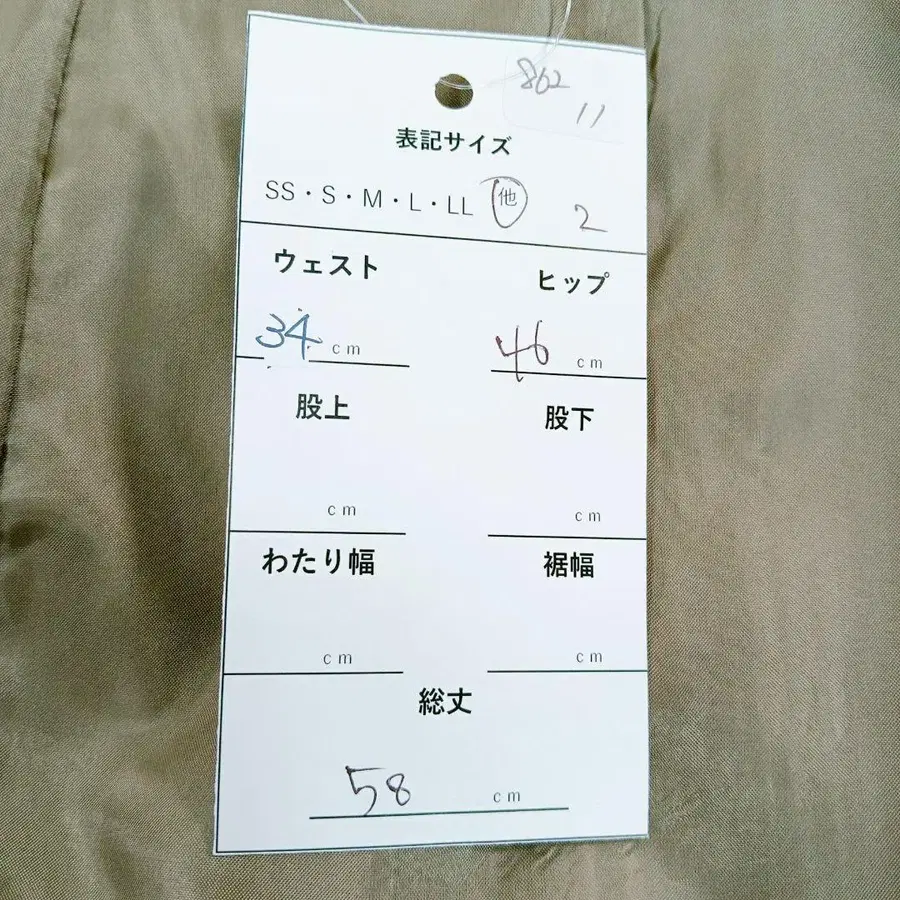 862
11
表記サイズ
SS・S・M・L・LL 他 2
ウェスト ヒップ
34 cm 46 cm
股上 股下
cm cm
わたり幅 裾幅
cm cm
総丈
58 cm